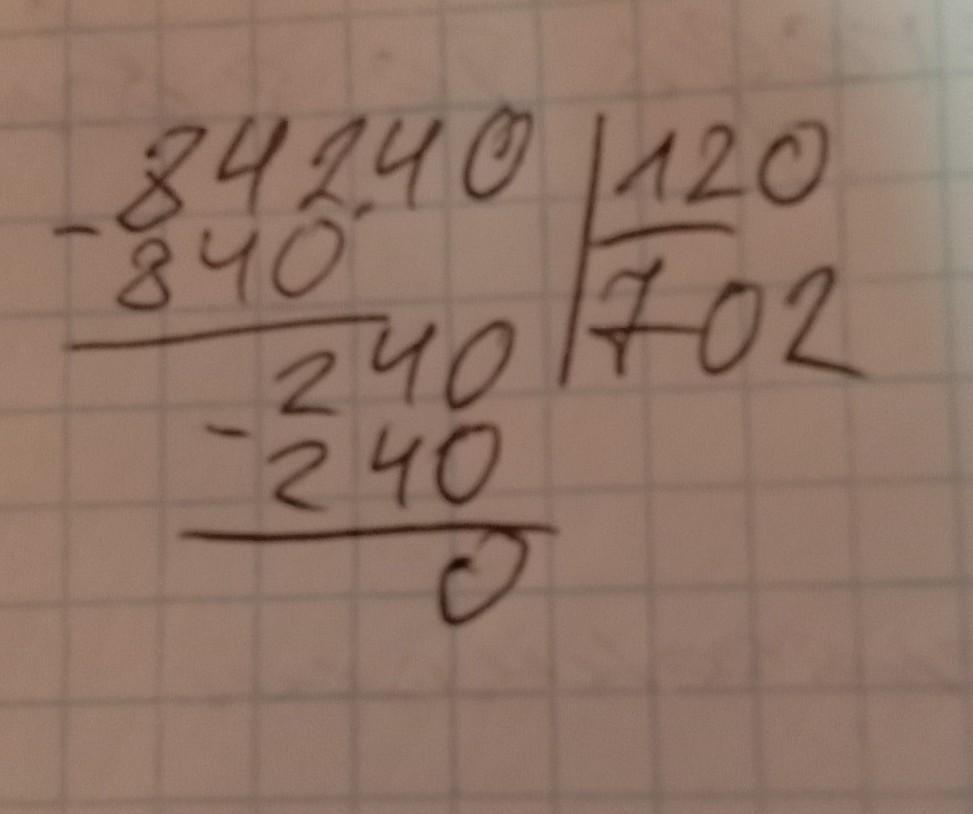 84240 120
-840 702
240
-240
0